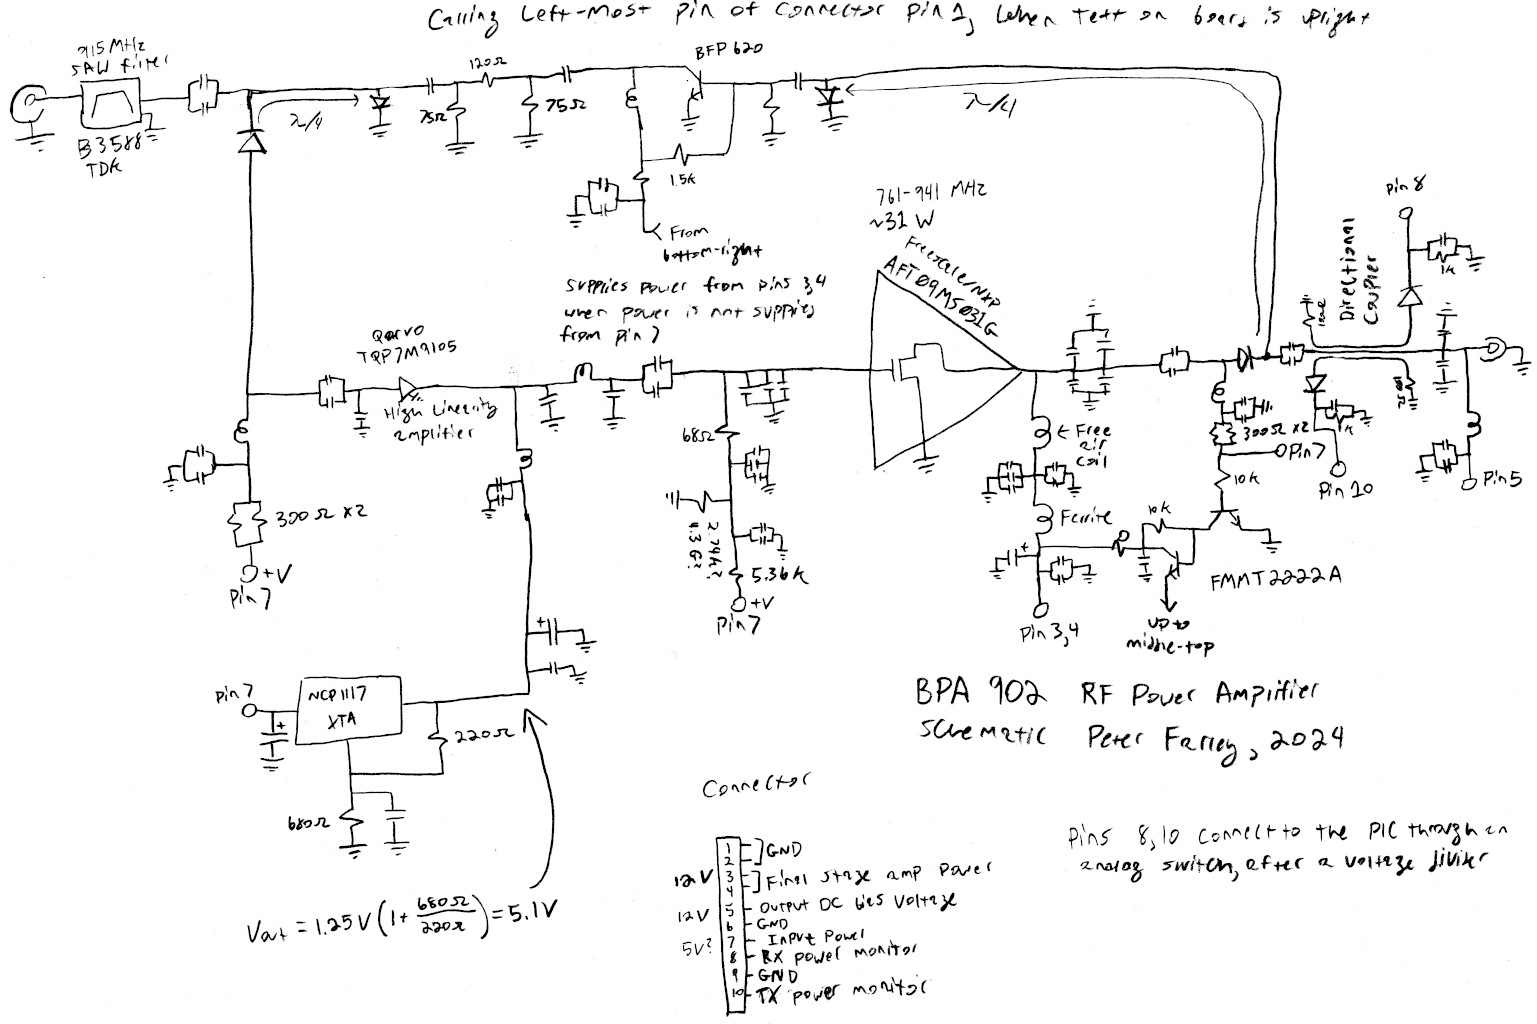 Calling Left-most pin of connector pin 1, when text on board is upright
915 MHz
SAW filter
B3588
TDK
λ/4
75Ω
120Ω
75Ω
BFP 620
1.5k
From
bottom-right
λ/4
761-941 MHz
~31 W
Freescale/NXP
AFT09MS031G
Supplies power from pins 3,4
when power is not supplied
from pin 7
Qorvo
TQP7M9105
High linearity
amplifier
300Ω x2
+V
Pin 7
68Ω
2.74k?
4.3 G?
5.36k
+V
Pin 7
Free
air
coil
Ferrite
Pin 3,4
10k
up to
middle-top
FMMT2222A
10k
300Ω x2
Pin 7
Directional
Coupler
Pin 8
1k
1k
Pin 10
Pin 5
Pin 7
NCP1117
XTA
220Ω
680Ω
Vout = 1.25V (1 + 680Ω/220Ω) = 5.1V
BPA 902 RF Power Amplifier
Schematic Peter Farley, 2024
Connector
1
2
GND
12V
3
4
Final stage amp power
12V
5
Output DC bias voltage
6
GND
5V?
7
Input power
8
RX power monitor
9
GND
10
TX power monitor
Pins 8,10 connect to the PIC through an
analog switch, after a voltage divider